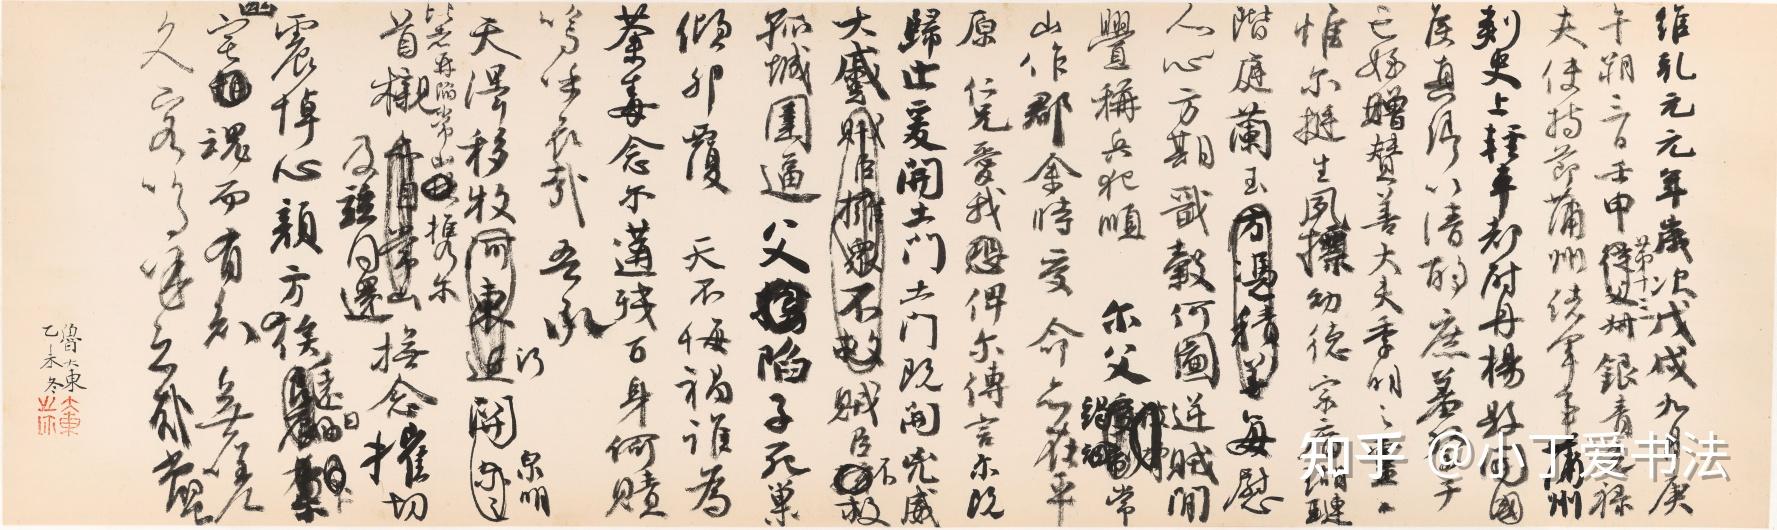 維乾元元年歲次戊戌九月庚
午朔三日壬申第十三叔銀青光祿
夫使持節蒲州諸軍事蒲州
刺史上輕車都尉丹楊縣開國
侯真卿以清酌庶羞祭于
亡姪贈贊善大夫季明之靈曰
惟爾挺生夙標幼德宗廟瑚璉
階庭蘭玉方憑積善每慰
人心方期戩穀何圖逆賊間
釁稱兵犯順 爾父竭誠常
山作郡余時受命亦在平
原仁兄愛我恐俾爾傳言爾既
歸止爰開土門土門既開凶威
大蹙賊臣擁眾不救賊臣不救
孤城圍逼父陷子死巢
傾卵覆 天不悔禍誰為
荼毒念爾遘殘百身何贖
嗚呼哀哉 吾承
天澤移牧河東近河關爾之泉明
比者再陷常山攜爾
首櫬自常山及並同還撫念摧切
震悼心顏方俟遠日卜
爾宅魂而有知無嗟
久客嗚呼哀哉尚饗
魯大東
乙未冬
知乎 @小丁爱书法